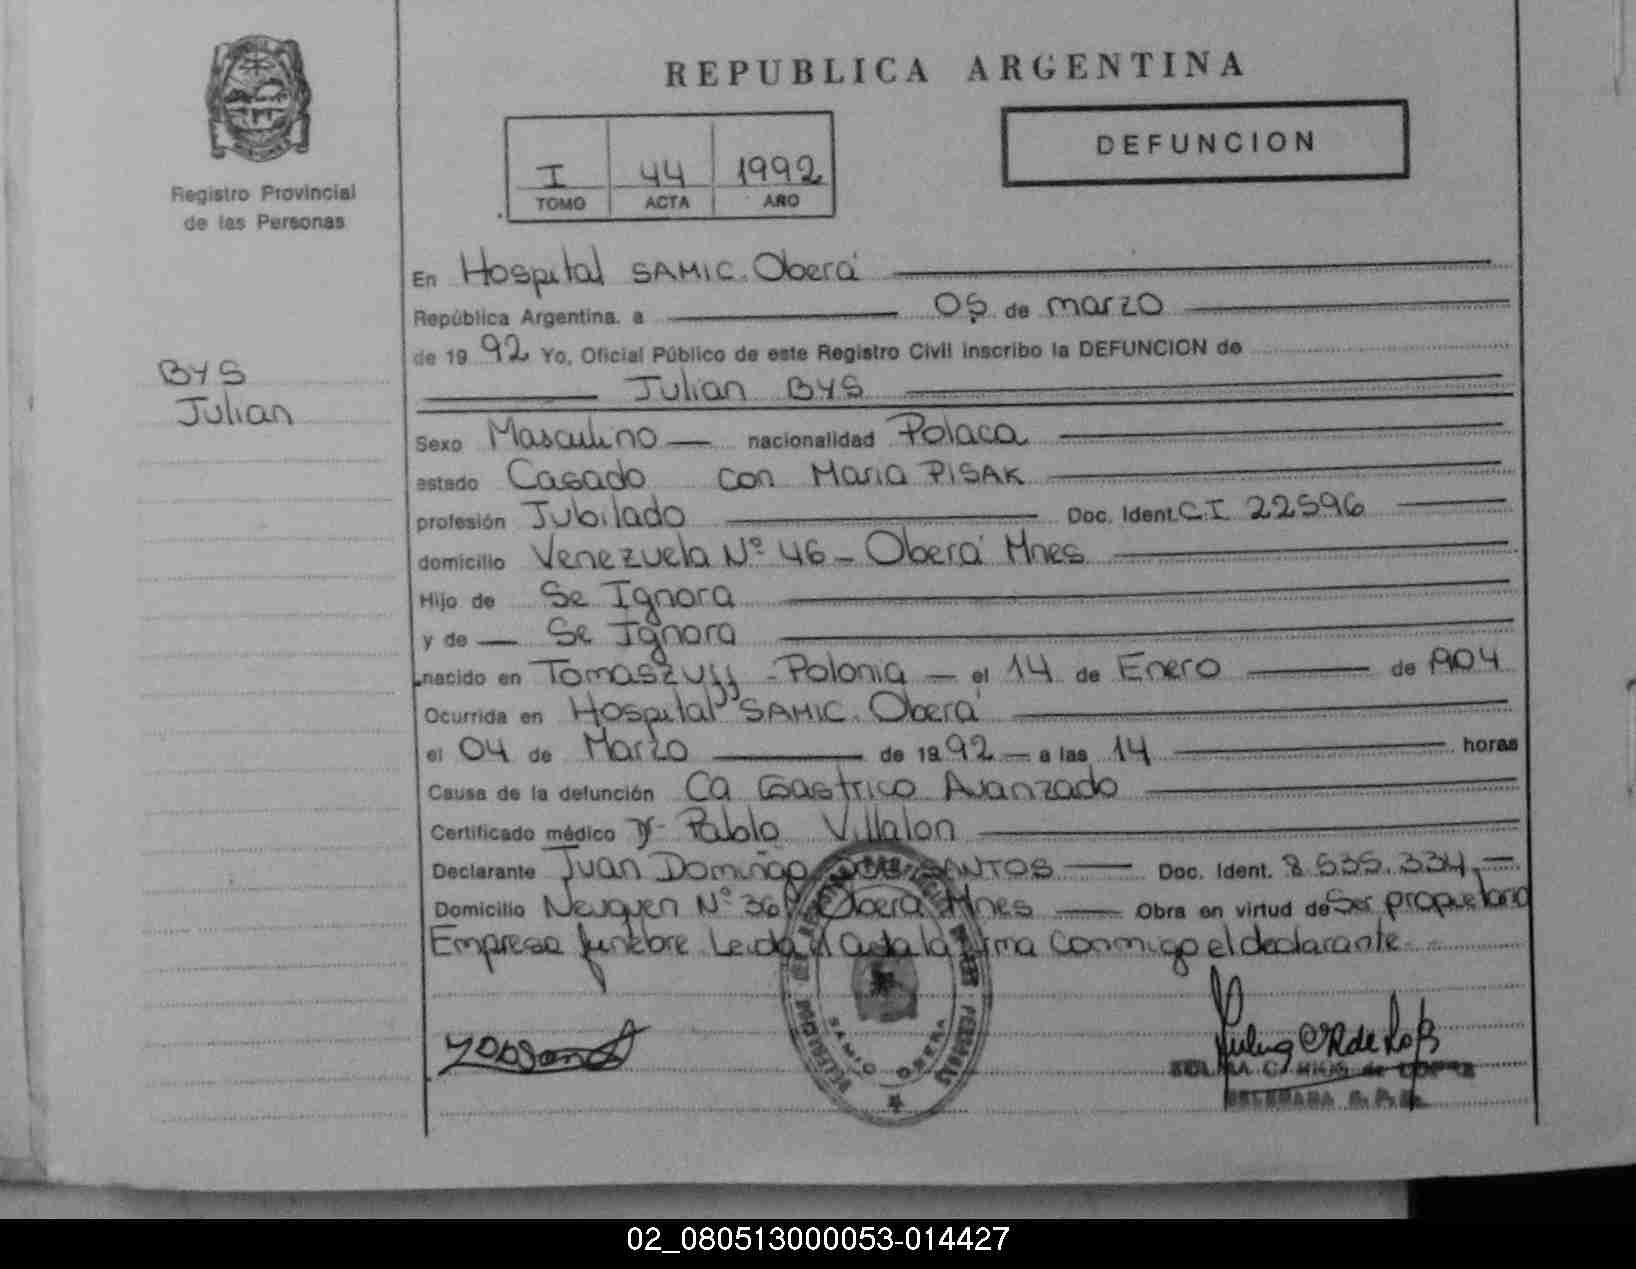 REPUBLICA ARGENTINA
DEFUNCION
I 44 1992
TOMO ACTA AÑO
Registro Provincial
de las Personas
BYS
Julian
En Hospital SAMIC. Oberá
República Argentina, a 05 de marzo
de 1992 Yo, Oficial Público de este Registro Civil inscribo la DEFUNCION de
Julian BYS
Sexo Masculino nacionalidad Polaca
estado Casado con Maria PISAK
profesión Jubilado Doc. Ident. C.I 22596
domicilio Venezuela Nº 46 - Oberá Mnes
Hijo de Se Ignora
y de Se Ignora
nacido en Tomaszuyy - Polonia el 14 de Enero de 1904
Ocurrida en Hospital SAMIC. Oberá
el 04 de Marzo de 1992 a las 14 horas
Causa de la defunción Ca Gastrico Avanzado
Certificado médico Dr. Pablo Villalon
Declarante Juan Domingo SANTOS Doc. Ident. 8.535.334,
Domicilio Neuquen Nº 36 Oberá Mnes Obra en virtud de Ser propietario
Empresa funebre Leida el acta la firma conmigo el declarante
SAMIC OBERA
02_080513000053-014427